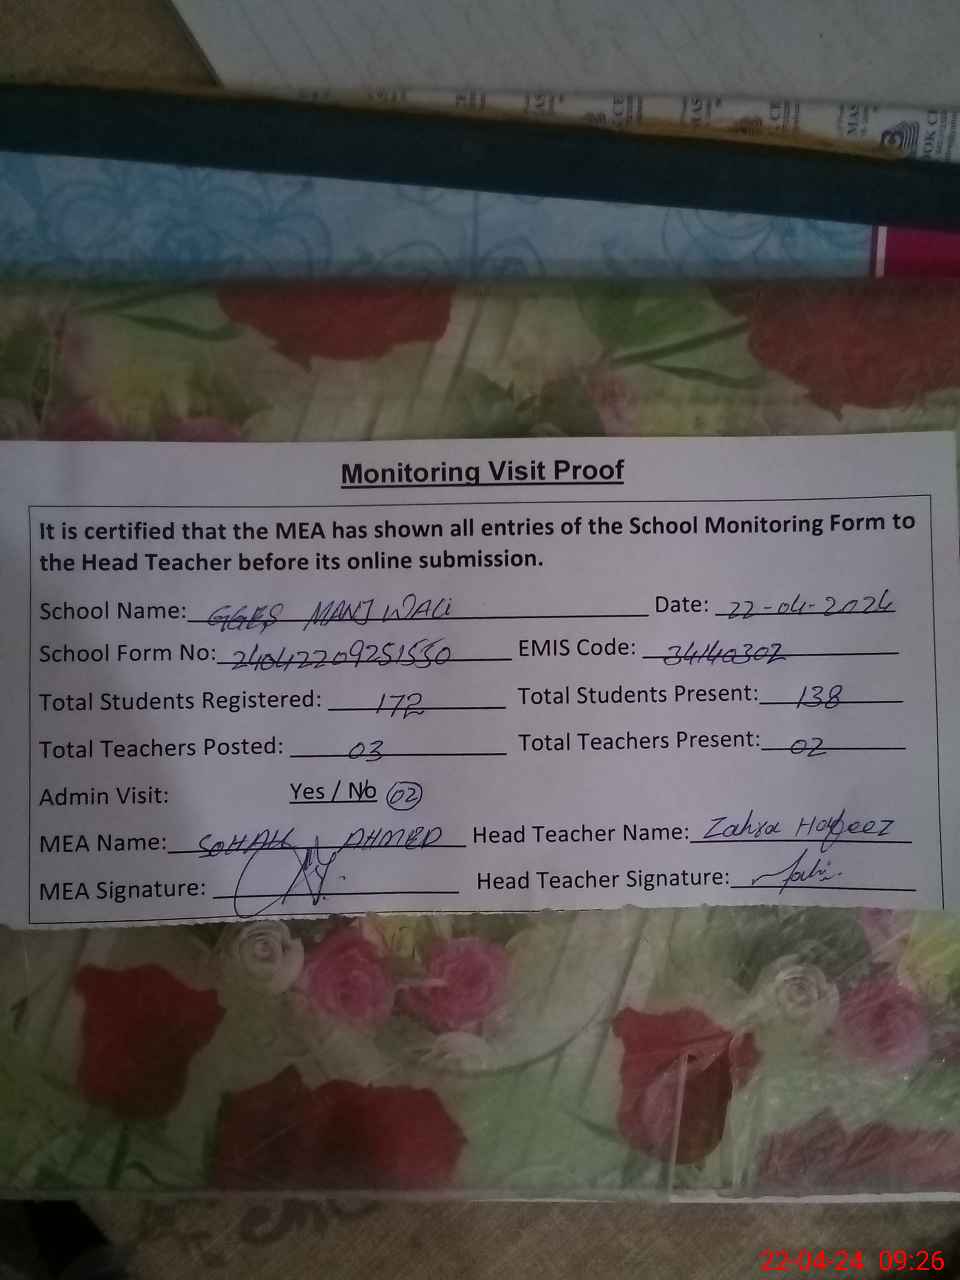 Monitoring Visit Proof
It is certified that the MEA has shown all entries of the School Monitoring Form to
the Head Teacher before its online submission.
School Name: GGES MANJ WALI Date: 22-04-2024
School Form No: 24042209251550 EMIS Code: 34140302
Total Students Registered: 172 Total Students Present: 138
Total Teachers Posted: 03 Total Teachers Present: 02
Admin Visit: Yes / No 02
MEA Name: SOHAIL AHMED Head Teacher Name: Zahra Hafeez
MEA Signature: Head Teacher Signature:
22-04-24 09:26